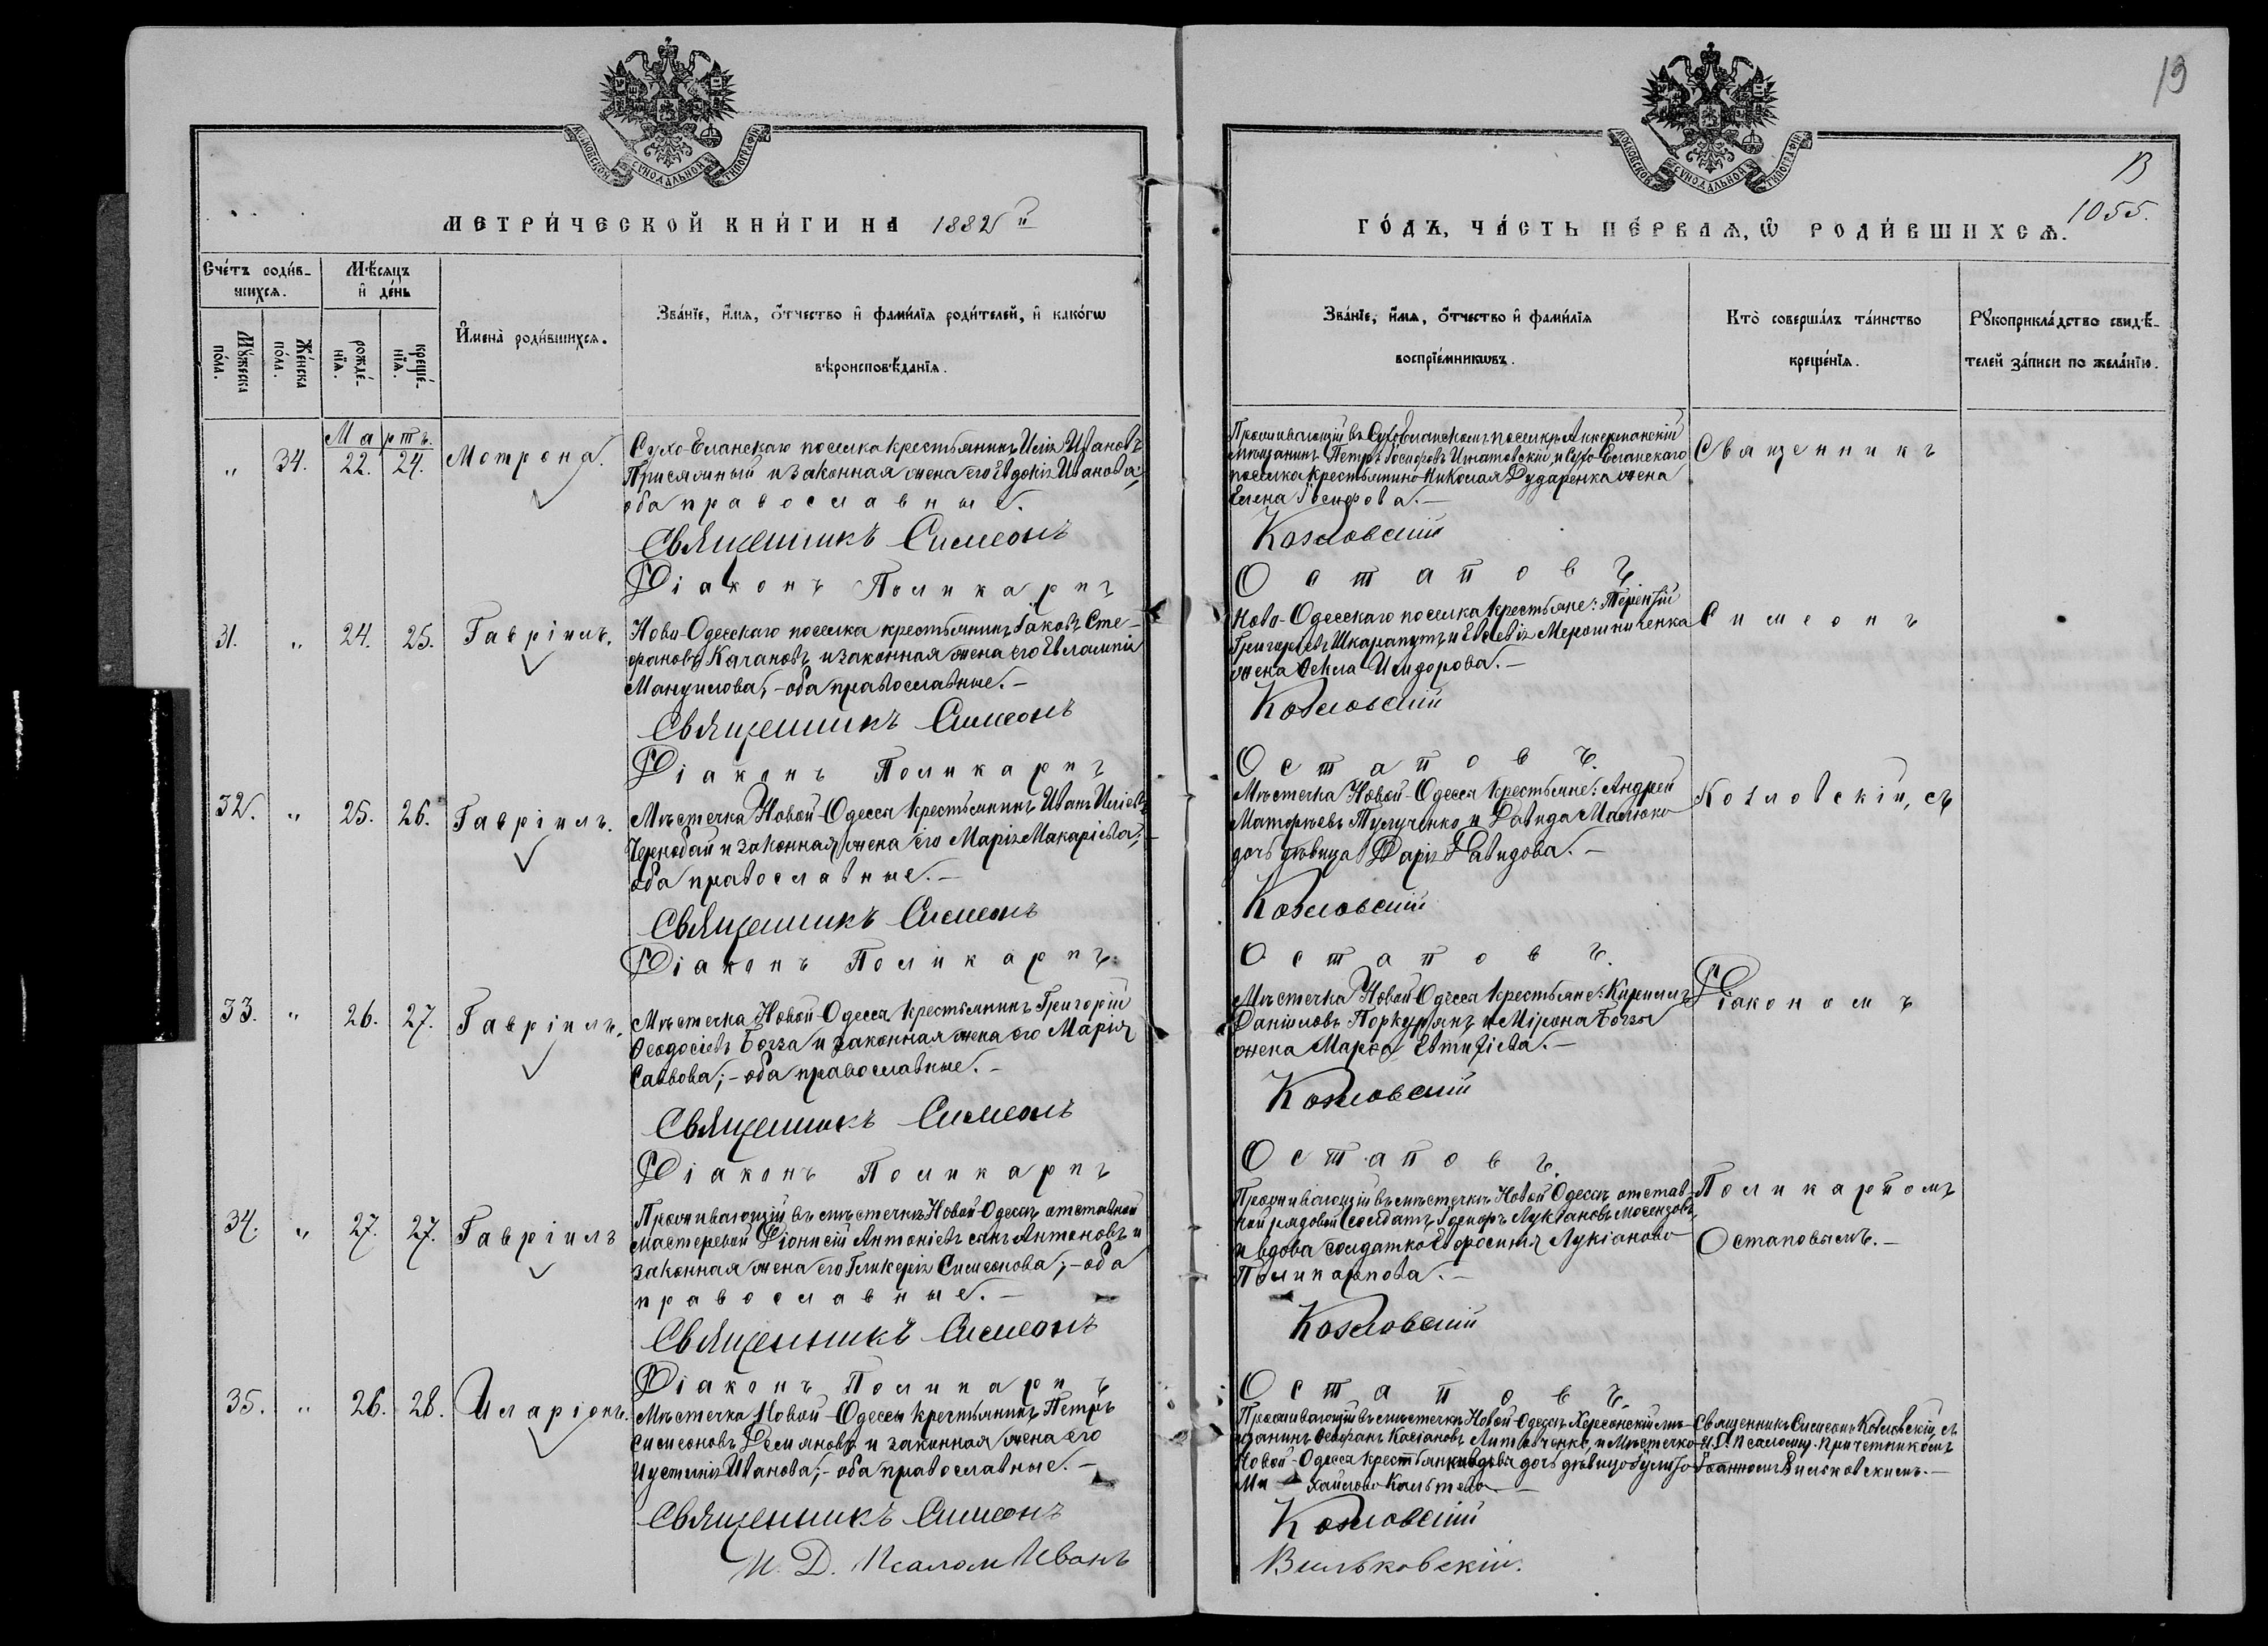 19
В
1055.
МОСКОВСКОЙ СѴНОДАЛЬНОЙ ТИПОГРАФІИ
МОСКОВСКОЙ СѴНОДАЛЬНОЙ ТИПОГРАФІИ
МЕТРИ́ЧЕСКОЙ КНИ́ГИ НА 1882й
ГО́ДЪ, ЧА́СТЬ ПЕ́РВАѦ, Ѽ РОДИ́ВШИХСѦ.
Сче́тъ роди́в-
шихсѧ.
Мѣ́сѧцъ
и҆ де́нь
Мꙋ́жеска
по́ла.
Же́нска
по́ла.
рожде́-
нїѧ.
креще́-
нїѧ.
И҆мена̀ роди́вшихсѧ.
Зва́нїе, и҆́мѧ, ѻ҆́тчество и҆ фами́лїѧ роди́телей, и҆ како́гѡ
вѣроисповѣ́данїѧ.
Зва́нїе, и҆́мѧ, ѻ҆́тчество и҆ фами́лїѧ
воспрїе́мникѡвъ.
Кто̀ соверша́лъ та́инство
креще́нїѧ.
Рꙋкоприкла́дство свидѣ́-
телей за́писи по жела́нїю.
Мартъ.
„ 34. 22. 24. Мотрона.
Сухо-Еланскаго поселка крестьянинъ Илія Ивановъ
Присяжный и законная жена его Евдокія Иванова,
оба православные.
Священникъ Симеонъ
Діаконъ Поликарпъ
Проживающій въ Сухоеланскомъ поселкѣ Аккерманскій
мѣщанинъ Петръ Іосифовъ Игнатовскій, и Сухо-Еланскаго
поселка крестьянина Николая Дударенка жена
Елена Іосифова.—
Козловскій
Остаповъ
Священникъ
31. „ 24. 25. Гавріилъ.
Ново-Одесскаго поселка крестьянинъ Іаковъ Сте-
фановъ Качановъ и законная жена его Евлампія
Мануилова,- оба православные.—
Священникъ Симеонъ
Діаконъ Поликарпъ
Ново-Одесскаго поселка крестьяне: Терентій
Григорьевъ Шкарапутъ и Евсевія Мерошниченка
жена Ѳекла Исидорова.—
Козловскій
Остаповъ.
Симеонъ
32. „ 25. 26. Гавріилъ.
Мѣстечка Новой-Одесса крестьянинъ Иванъ Иліевъ
Чернобай и законная жена его Марія Макаріева,
оба православные.—
Священникъ Симеонъ
Діаконъ Поликарпъ.
Мѣстечка Новой-Одесса крестьяне: Андрей
Матфѣевъ Тулученко и Давида Малюка
дочь дѣвица Дарія Давидова.—
Козловскій
Остаповъ.
Козловскій, съ
33. „ 26. 27. Гавріилъ.
Мѣстечка Новой-Одесса крестьянинъ Григорій
Ѳеодосіевъ Богза и законная жена его Марія
Саввова;- оба православные.—
Священникъ Симеонъ
Діаконъ Поликарпъ
Мѣстечка Новой-Одесса крестьяне: Кириллъ
Даніиловъ Поркурянъ и Мірона Богзы
жена Марѳа Евтихіева.—
Козловскій
Остаповъ.
Діакономъ
34. „ 27. 27. Гавріилъ
Проживающій въ мѣстечкѣ Новой-Одессѣ отставной
мастеровой Діонисій Антоніевъ сынъ Антоновъ и
законная жена его Гликерія Симеонова;- оба
православные.—
Священникъ Симеонъ
Діаконъ Поликарпъ
Проживающій въ мѣстечкѣ Новой Одессѣ отстав-
ной рядовой солдатъ Іосифъ Лукіановъ
и вдова солдатка Евфросинія Лукіанова
Поликарпова.—
Козловскій
Остаповъ.
Поликарпомъ
Остаповымъ.—
35. „ 26. 28. Иларіонъ.
Мѣстечка Новой-Одессы крестьянинъ Петръ
Симеоновъ Демяновъ и законная жена его
Иустинія Иванова;- оба православные.—
Священникъ Симеонъ
И. Д. Псалом Иванъ
Проживающій въ мѣстечкѣ Новой-Одессѣ Херсонскій мѣ-
щанинъ Ѳеофанъ Касіановъ Литовченко, и Мѣстечка
Новой-Одесса дочь дѣвица Іулита
Ми- хайлова
Козловскій
Вильковскій.
Священникъ Симеонъ Козловскій, съ
И. Д. Псаломщ. Причетникомъ
Іоанномъ Вильковскимъ.—